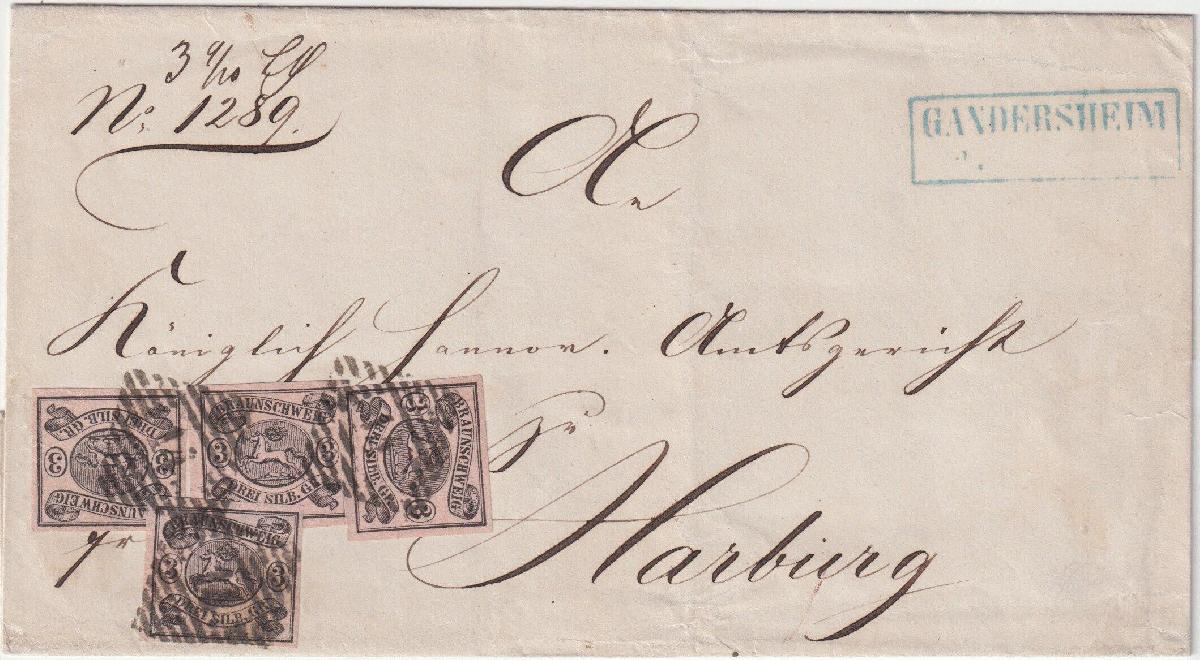 3 9/10 Lth
No. 1289.
GANDERSHEIM
An
Königlich Hannov. Amtsgericht
zu
Harburg
DREI SILB. GR.
3 3
BRAUNSCHWEIG
BRAUNSCHWEIG
3 3
DREI SILB. GR.
BRAUNSCHWEIG
3 3
DREI SILB. GR.
fr
BRAUNSCHWEIG
3 3
DREI SILB. GR.